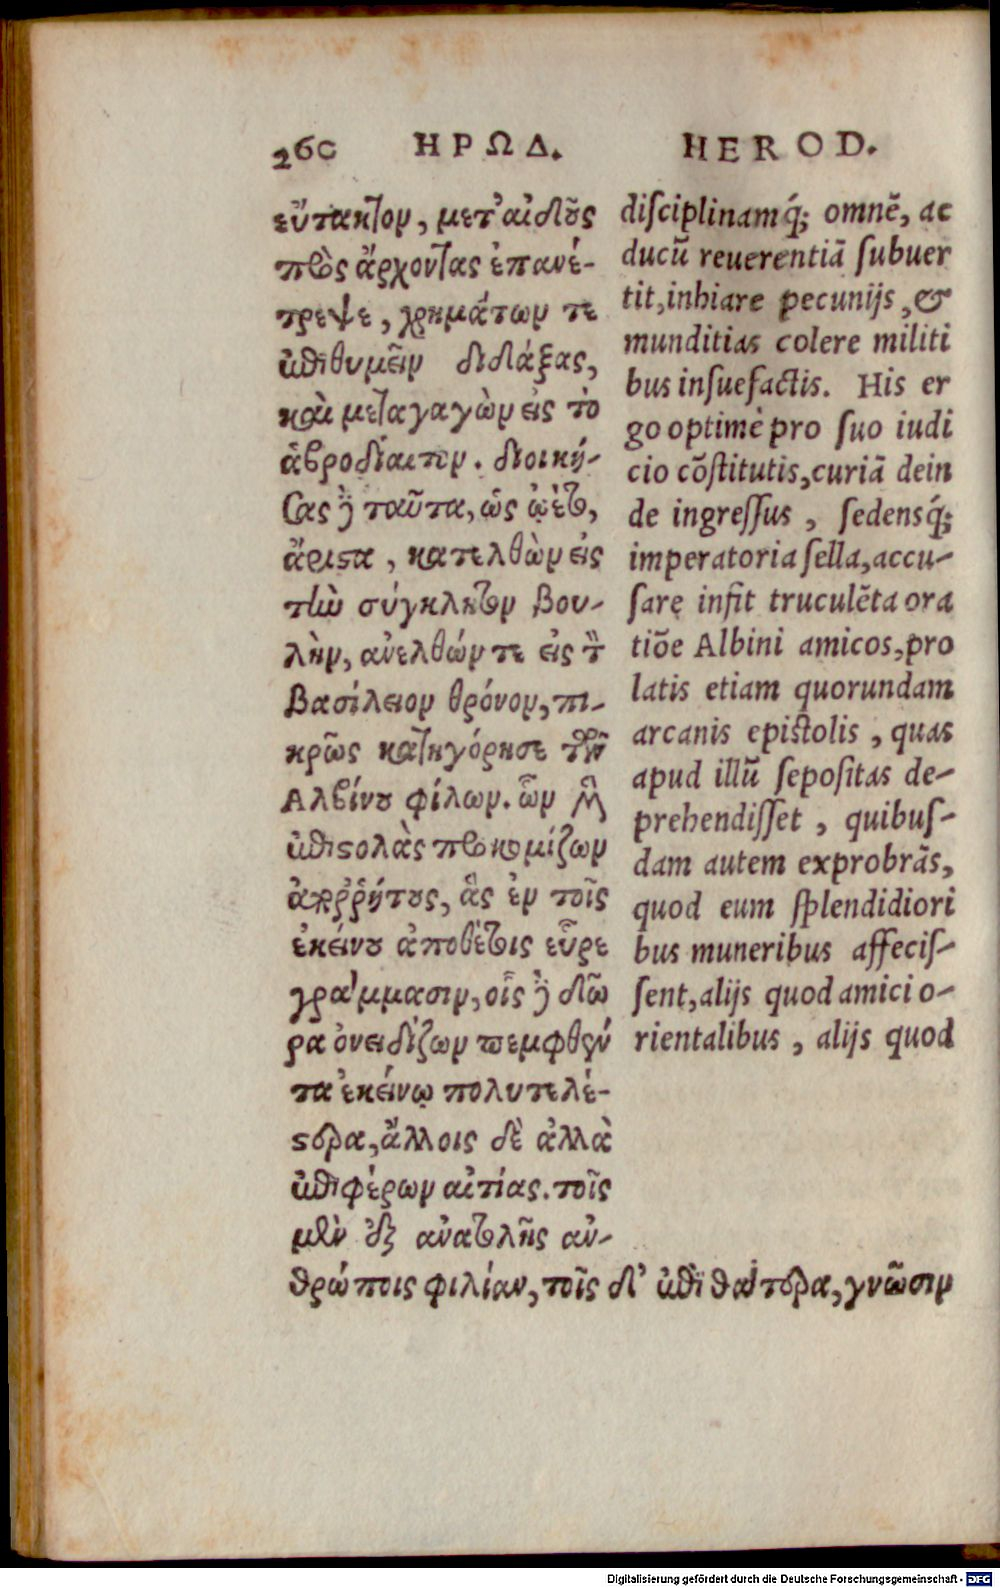 260 ΗΡΩΔ. HEROD.
εὔτακτον, μετ' αἰδοῦς
πρὸς ἄρχοντας ἐπανέ-
τρεψε, χρημάτων τε
ἐπιθυμεῖν διδάξας,
καὶ μεταγαγὼν εἰς τὸ
ἁβροδίαιτον. διοική-
σας δὲ ταῦτα, ὡς ᾤετο,
ἄριστα, κατελθὼν εἰς
τὴν σύγκλητον βου-
λὴν, ἀνελθών τε εἰς τὸν
βασίλειον θρόνον, πι-
κρῶς κατηγόρησε τῶν
Αλβίνου φίλων. ὧν μὲν
ἐπιστολὰς προκομίζων
ἀπορρήτους, ἃς ἐν τοῖς
ἐκείνου ἀποθέτοις εὗρε
γράμμασιν, οἷς δὲ δῶ
ρα ὀνειδίζων πεμφθέν
τα ἐκείνῳ πολυτελέ-
στερα, ἄλλοις δὲ ἀλλὰ
ἐπιφέρων αἰτίας. τοῖς
μὲν ἐξ ἀνατολῆς ἀν-
θρώποις φιλίαν, τοῖς δ' ἐπὶ θάτερα, γνῶσιν
disciplinamq́; omnē, ac
ducū reuerentiā subuer
tit, inhiare pecunijs, &
munditias colere militi
bus insuefactis. His er
go optimè pro suo iudi
cio cōstitutis, curiā dein
de ingressus, sedensq́;
imperatoria sella, accu-
sare infit truculēta ora
tiōe Albini amicos, pro
latis etiam quorundam
arcanis epistolis, quas
apud illū sepositas de-
prehendisset, quibus-
dam autem exprobrās,
quod eum splendidiori
bus muneribus affecis-
sent, alijs quod amici o-
rientalibus, alijs quod
Digitalisierung gefördert durch die Deutsche Forschungsgemeinschaft - DFG